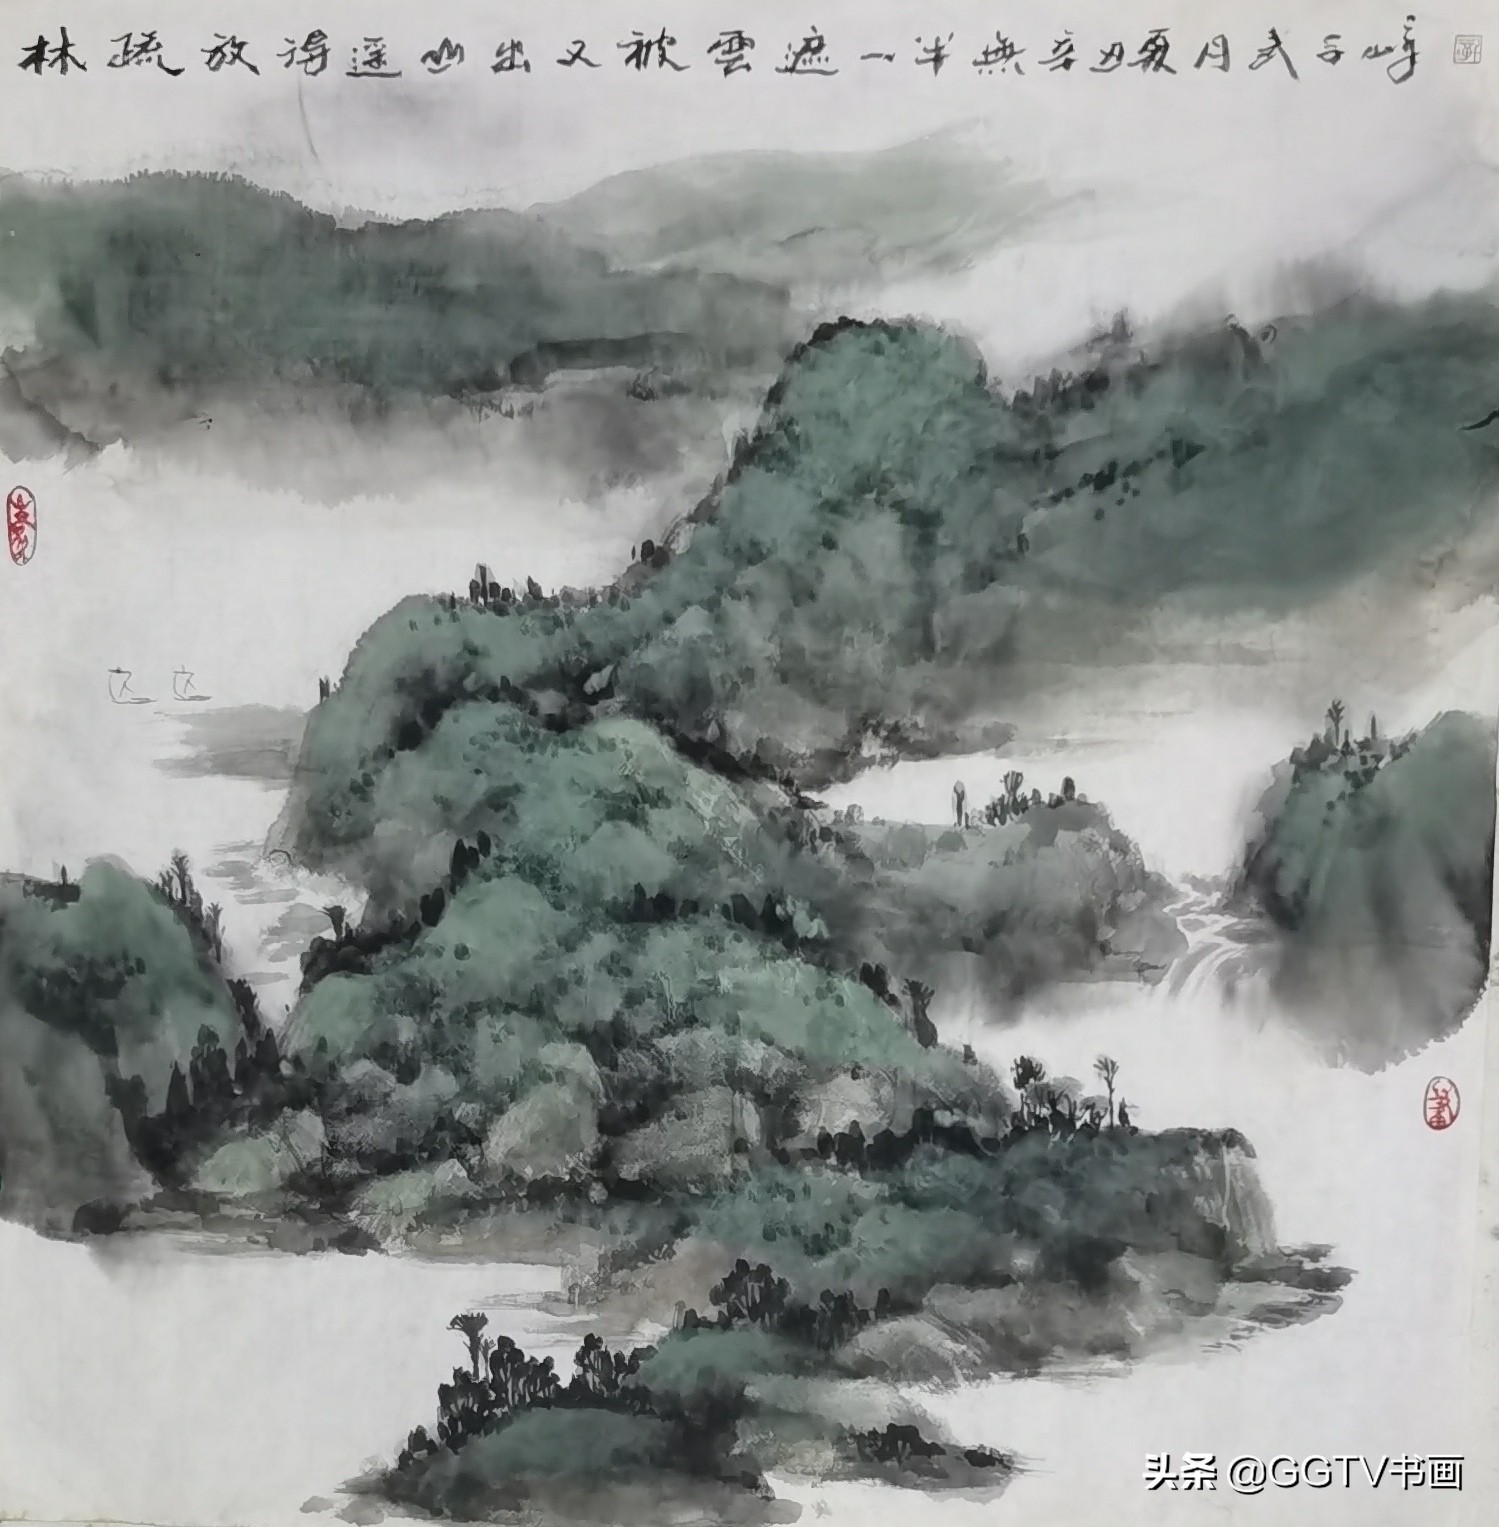 林疏放得遥山出又被雲遮一半無辛丑夏月武子峰
头条 @GGTV书画